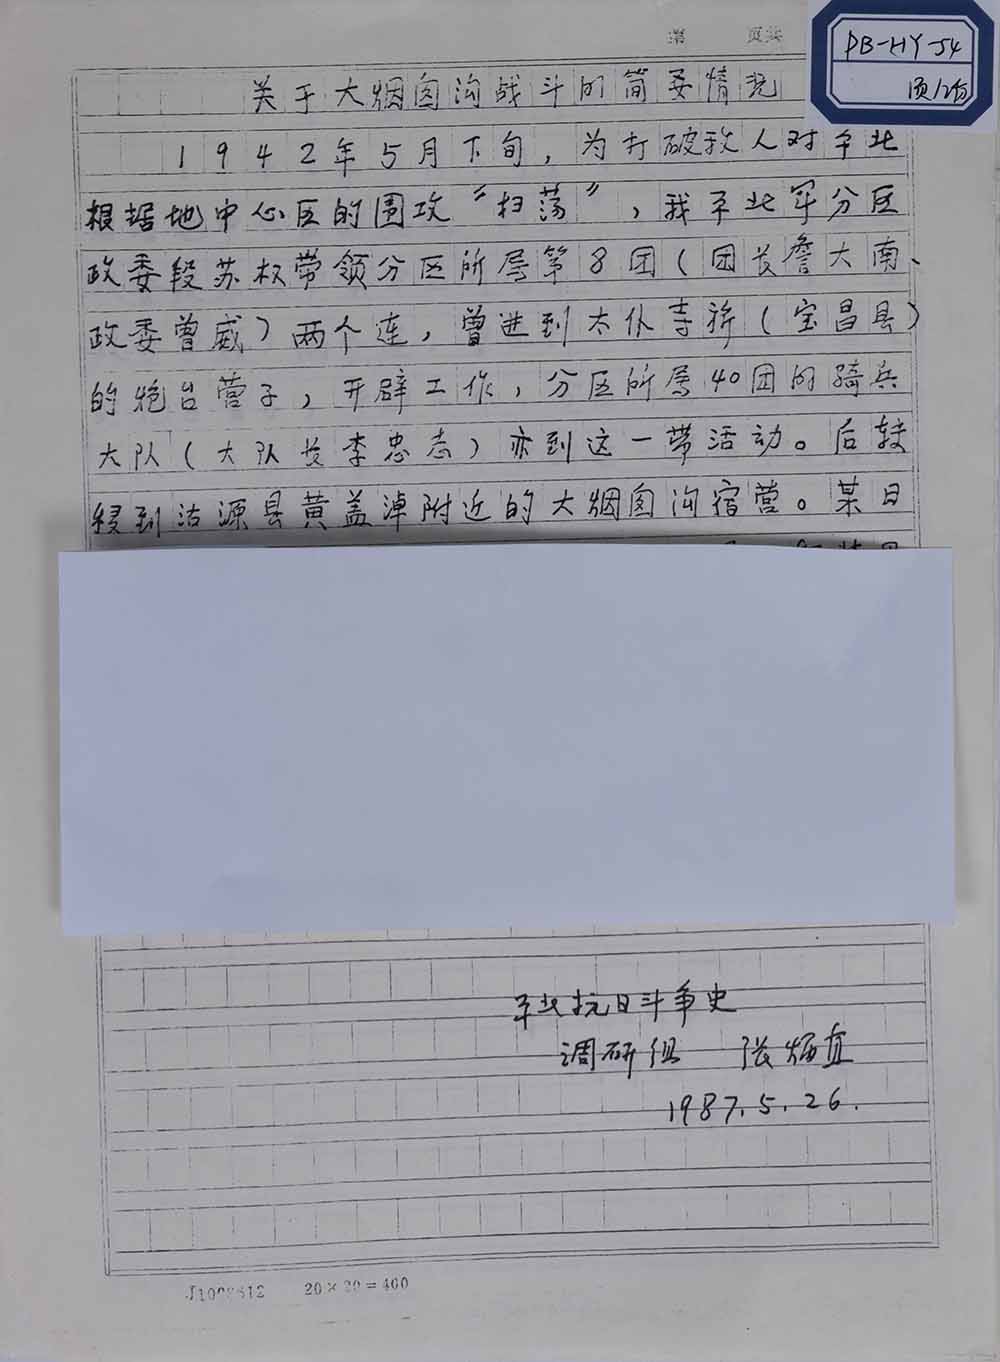 第 页共
PB-HY-54
1页/2份
关于大烟囱沟战斗的简要情况
1942年5月下旬，为打破敌人对平北
根据地中心区的围攻“扫荡”，我平北军分区
政委段苏权带领分区所属第8团（团长詹大南、
政委曾威）两个连，曾进到太仆寺旗（宝昌县）
的炮台营子，开辟工作，分区所属40团的骑兵
大队（大队长李忠志）亦到这一带活动。后转
移到沽源县黄盖淖附近的大烟囱沟宿营。某日
平北抗日斗争史
调研组 张炳直
1987.5.26.
20×20=400